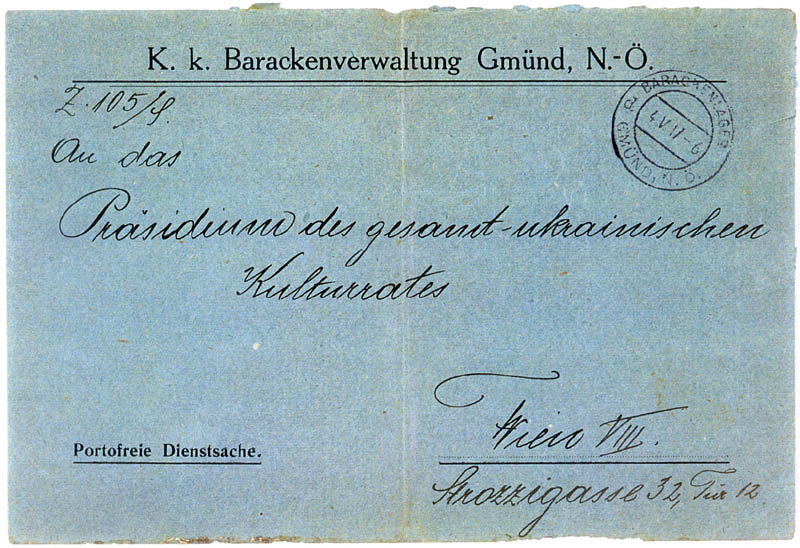 K. k. Barackenverwaltung Gmünd, N.-Ö.
Z. 105/
BARACKENLAGER
4.V.17-6
GMÜND, N.Ö.
An das
Präsidium des gesamt-ukrainischen
Kulturrates
Wien VIII.
Portofreie Dienstsache.
Strozzigasse 32, Tür 12